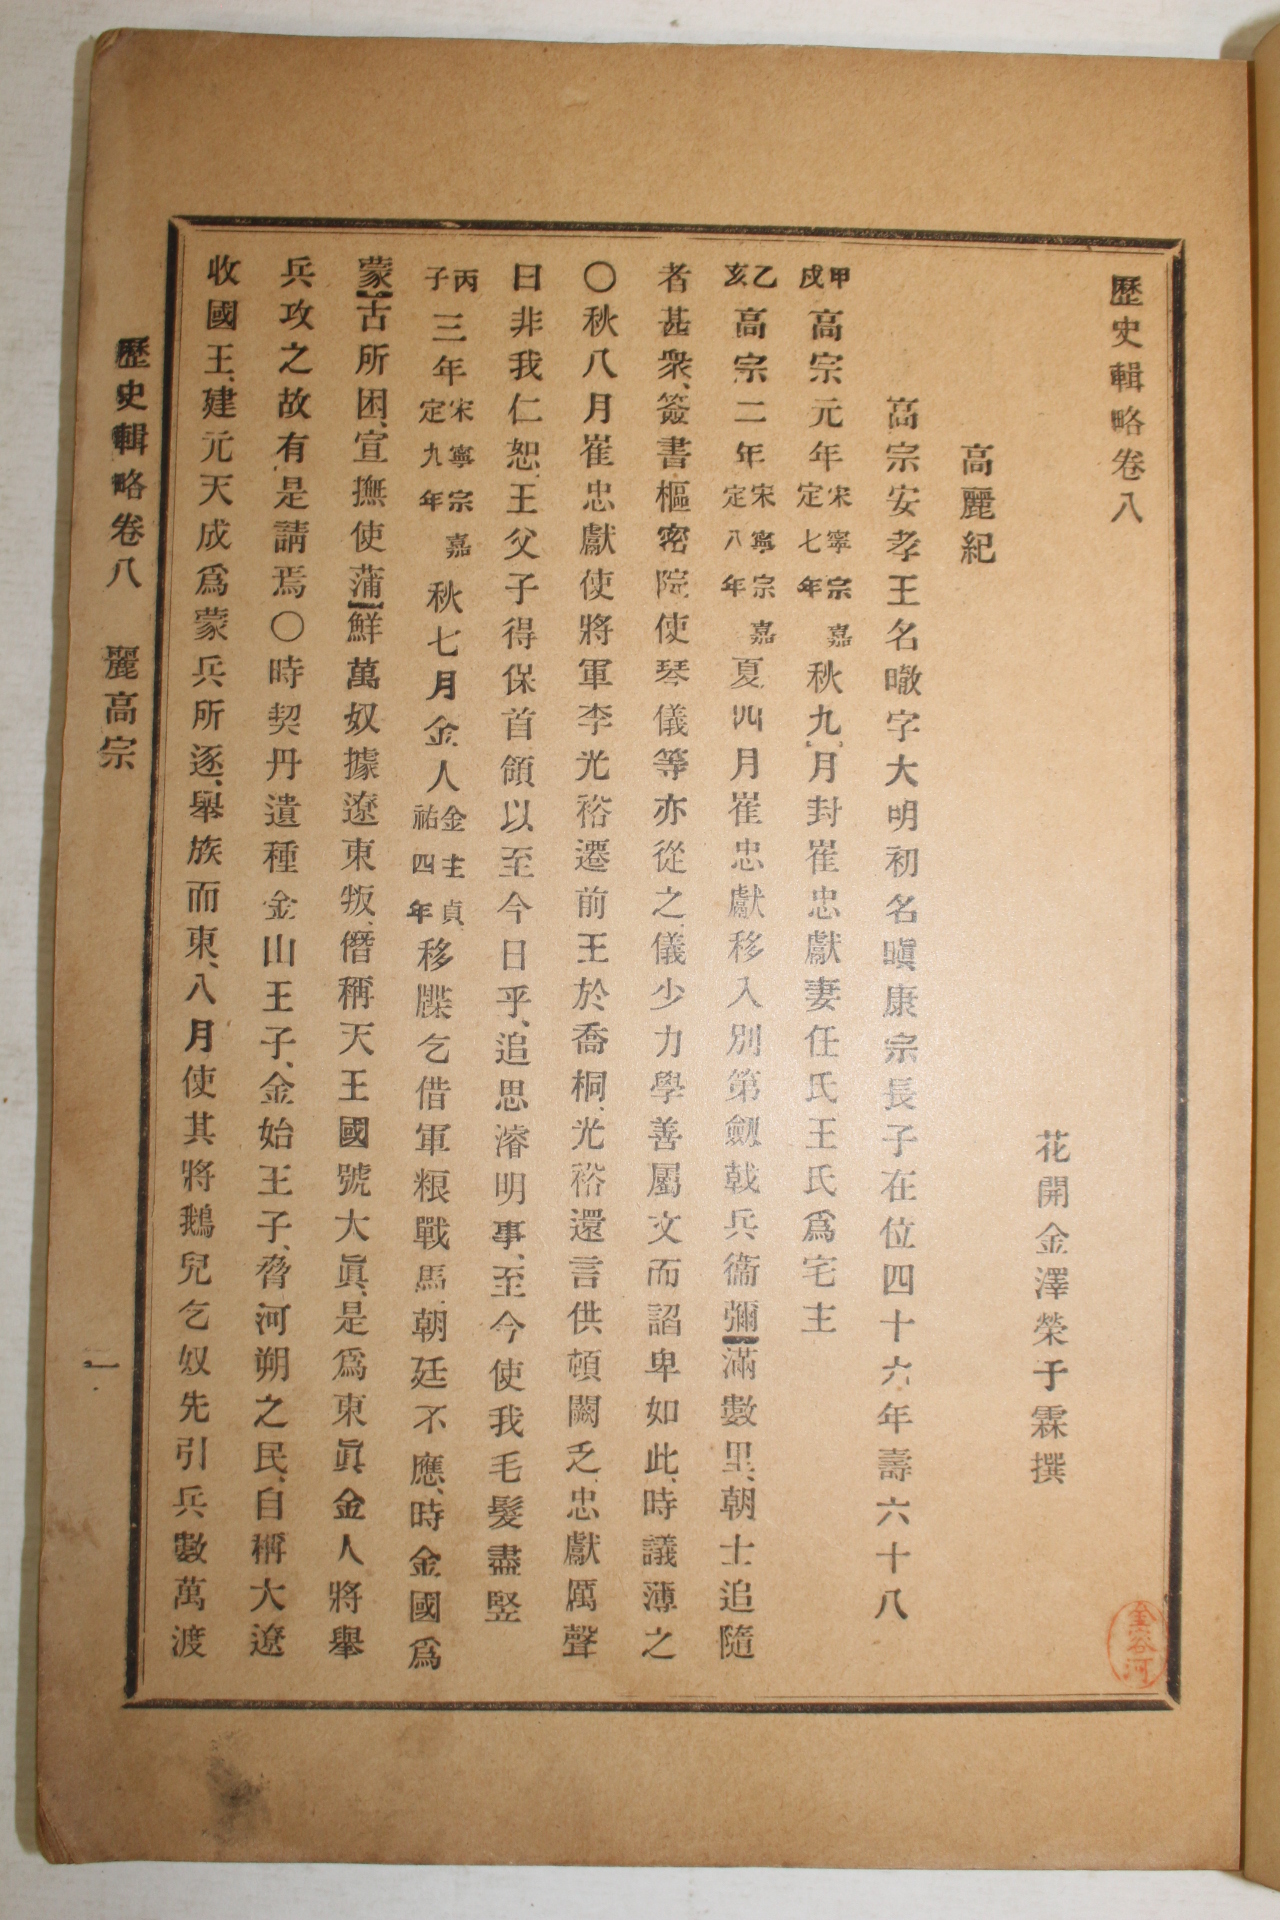 歷史輯略卷八
花開金澤榮于霖撰
高麗紀
高宗安孝王名㬚字大明初名瞋康宗長子在位四十六年壽六十八
甲戌高宗元年宋寧宗嘉定七年秋九月封崔忠獻妻任氏王氏爲宅主
乙亥高宗二年宋寧宗嘉定八年夏四月崔忠獻移入別第劍戟兵衞彌滿數里、朝士追隨
者甚衆、簽書樞密院使琴儀等亦從之、儀少力學善屬文而諂卑如此、時議薄之
〇秋八月崔忠獻使將軍李光裕遷前王於喬桐、光裕還言供頓闕乏、忠獻厲聲
曰非我仁恕、王父子得保首領以至今日乎、追思濬明事、至今使我毛髮盡竪
丙子三年宋寧宗嘉定九年秋七月金人金主貞祐四年移牒乞借軍粮戰馬、朝廷不應、時金國爲
蒙古所困、宣撫使蒲鮮萬奴據遼東叛、僭稱天王國號大眞、是爲東眞、金人將擧
兵攻之故有是請焉〇時契丹遺種金山王子、金始王子、脅河朔之民、自稱大遼
收國王、建元天成爲蒙兵所逐、擧族而東、八月使其將鵝兒乞奴先引兵數萬渡
歷史輯略卷八　麗高宗
一
金容河